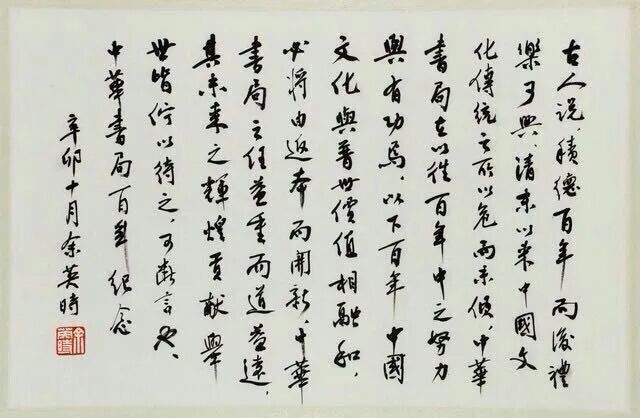 古人說，積德百年而後禮
樂可興，清末以來中國文
化傳統之所以危而未傾，中華
書局在以往百年中之努力
與有功焉，以下百年中國
文化與普世價值相融和，
必將由返本而開新，中華
書局之任益重而道益遠，
其未來之輝煌貢獻舉
世皆佇以待之，可斷言也、
中華書局百年紀念
辛卯十月余英時